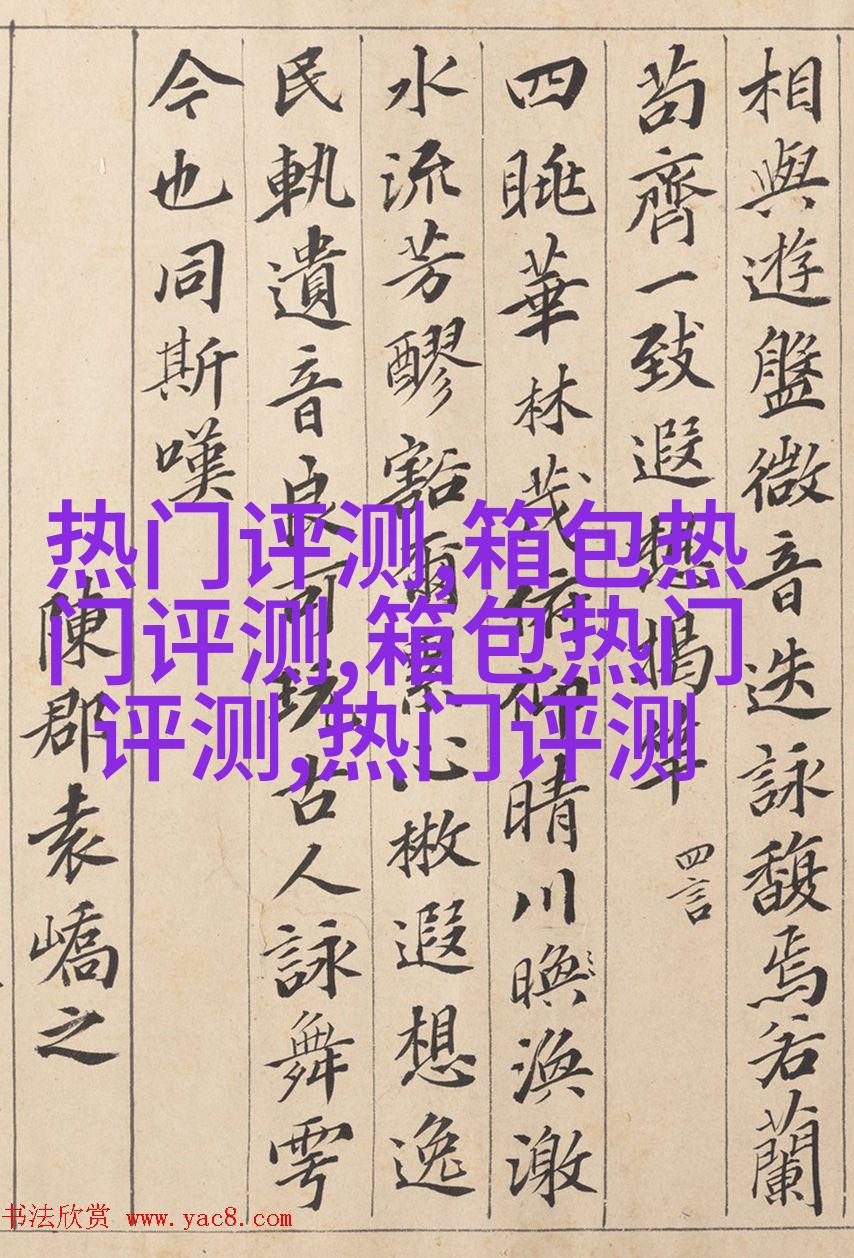 相與遊盤微音迭詠馥焉若蘭
苟齊一致遐想揭竿 四言
四眺華林茂俯仰晴川暎渙激
水流芳醪豁爾累心散遐想逸
民軌遺音良可玩古人詠舞雩
今也同斯嘆
陳郡袁嶠之
热门评测,箱包热
门评测,箱包热门
评测,热门评测
书法欣赏 www.yac8.com